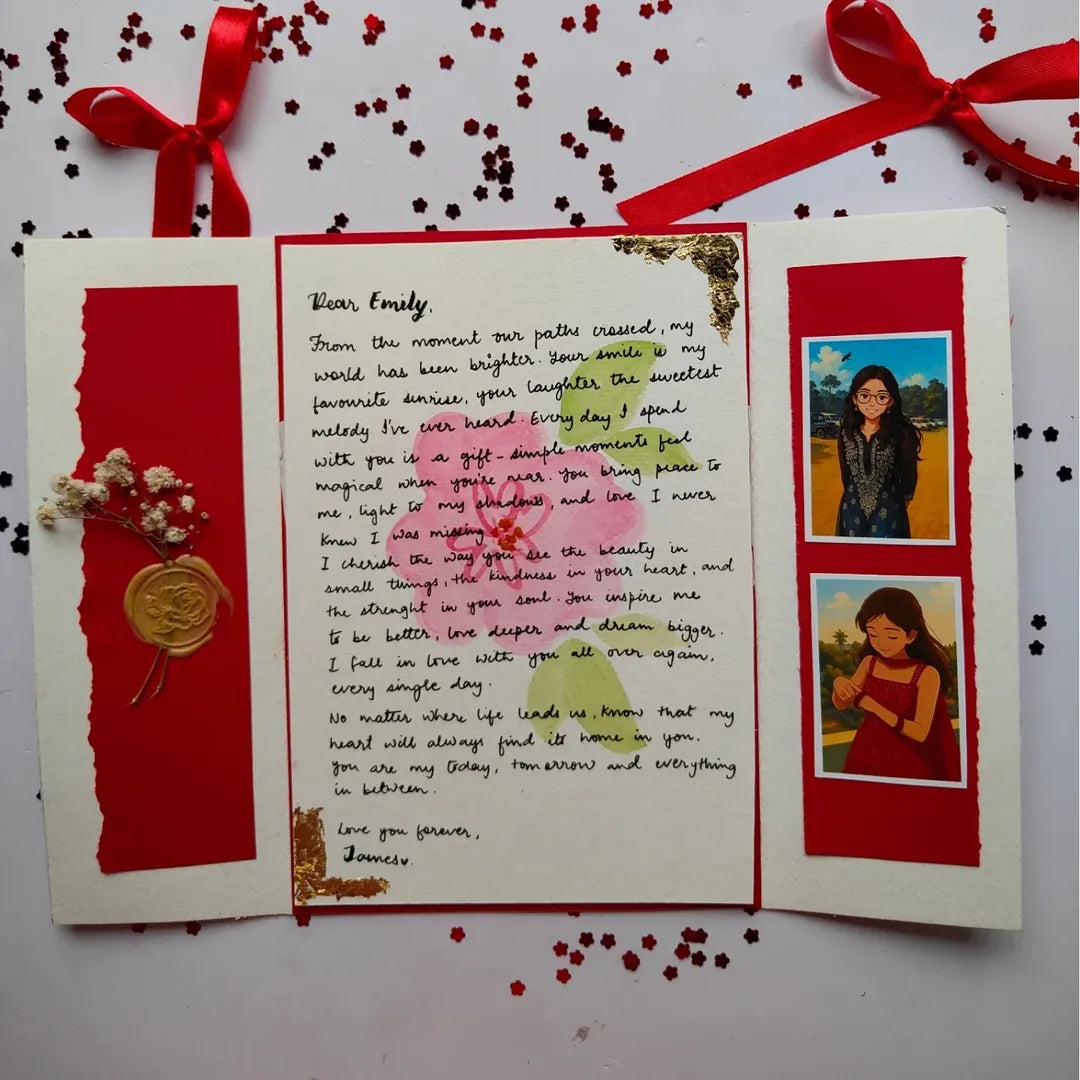 Dear Emily,
From the moment our paths crossed, my
world has been brighter. Your smile is my
favourite sunrise, your laughter the sweetest
melody I've ever heard. Every day I spend
with you is a gift - simple moments feel
magical when you're near. You bring peace to
me, light to my shadows, and love I never
knew I was missing
I cherish the way you see the beauty in
small things, the kindness in your heart, and
the strenght in your soul. You inspire me
to be better, love deeper and dream bigger.
I fall in love with you all over again,
every single day.
No matter where life leads us, know that my
heart will always find its home in you.
You are my today, tomorrow and everything
in between.
Love you forever,
James♥.